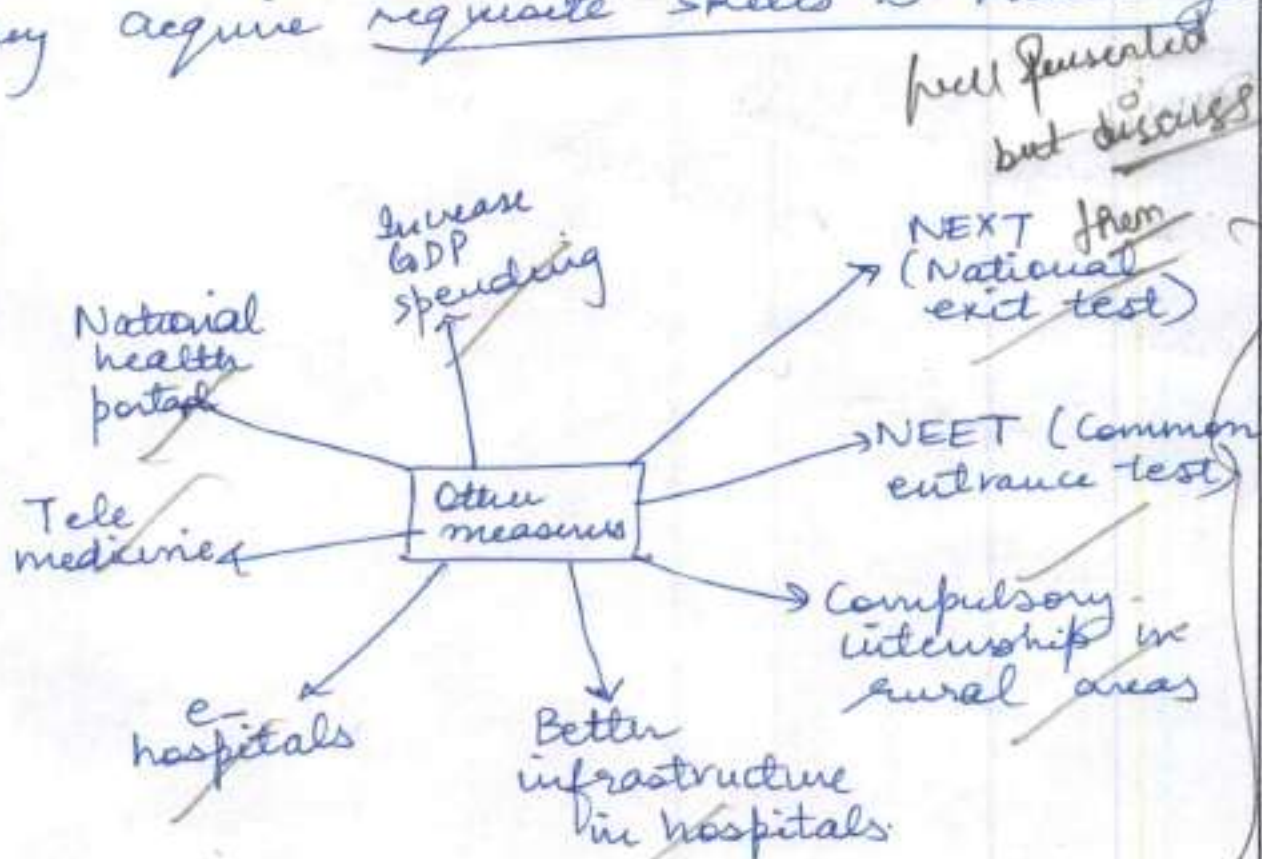 acquire requisite skills
well Presented
but discuss
them
Increase
GDP
spending
NEXT
(National
exit test)
National
health
portal
NEET (Common
entrance test)
Other
measures
Tele
medicine
Compulsory
internship in
rural areas
e-
hospitals
Better
infrastructure
in hospitals.